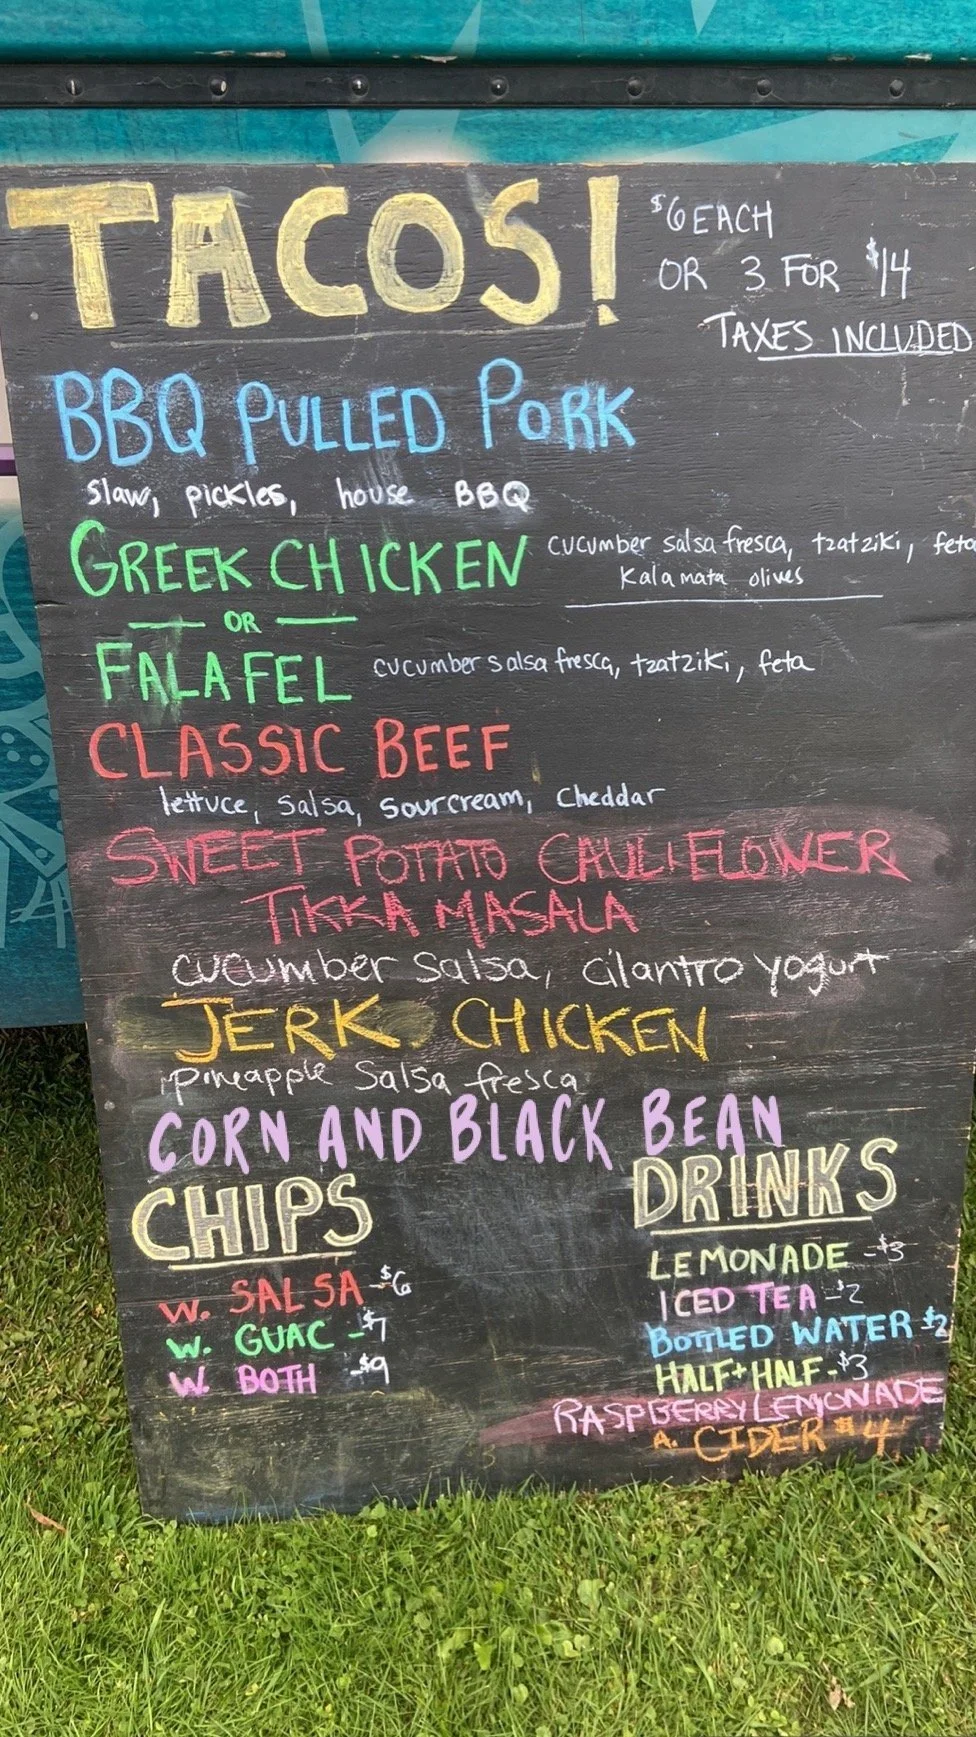 TACOS!
$6 EACH
OR 3 FOR $14
TAXES INCLUDED
BBQ PULLED PORK
slaw, pickles, house BBQ
GREEK CHICKEN
cucumber salsa fresca, tzatziki, feta
Kalamata olives
OR
FALAFEL
cucumber salsa fresca, tzatziki, feta
CLASSIC BEEF
lettuce, salsa, sourcream, cheddar
SWEET POTATO CAULIFLOWER
TIKKA MASALA
cucumber salsa, cilantro yogurt
JERK CHICKEN
pineapple salsa fresca
CORN AND BLACK BEAN
CHIPS
W. SALSA -$6
W. GUAC -$7
W. BOTH -$9
DRINKS
LEMONADE -$3
ICED TEA -$2
BOTTLED WATER $2
HALF+HALF -$3
RASPBERRY LEMONADE
A. CIDER $4